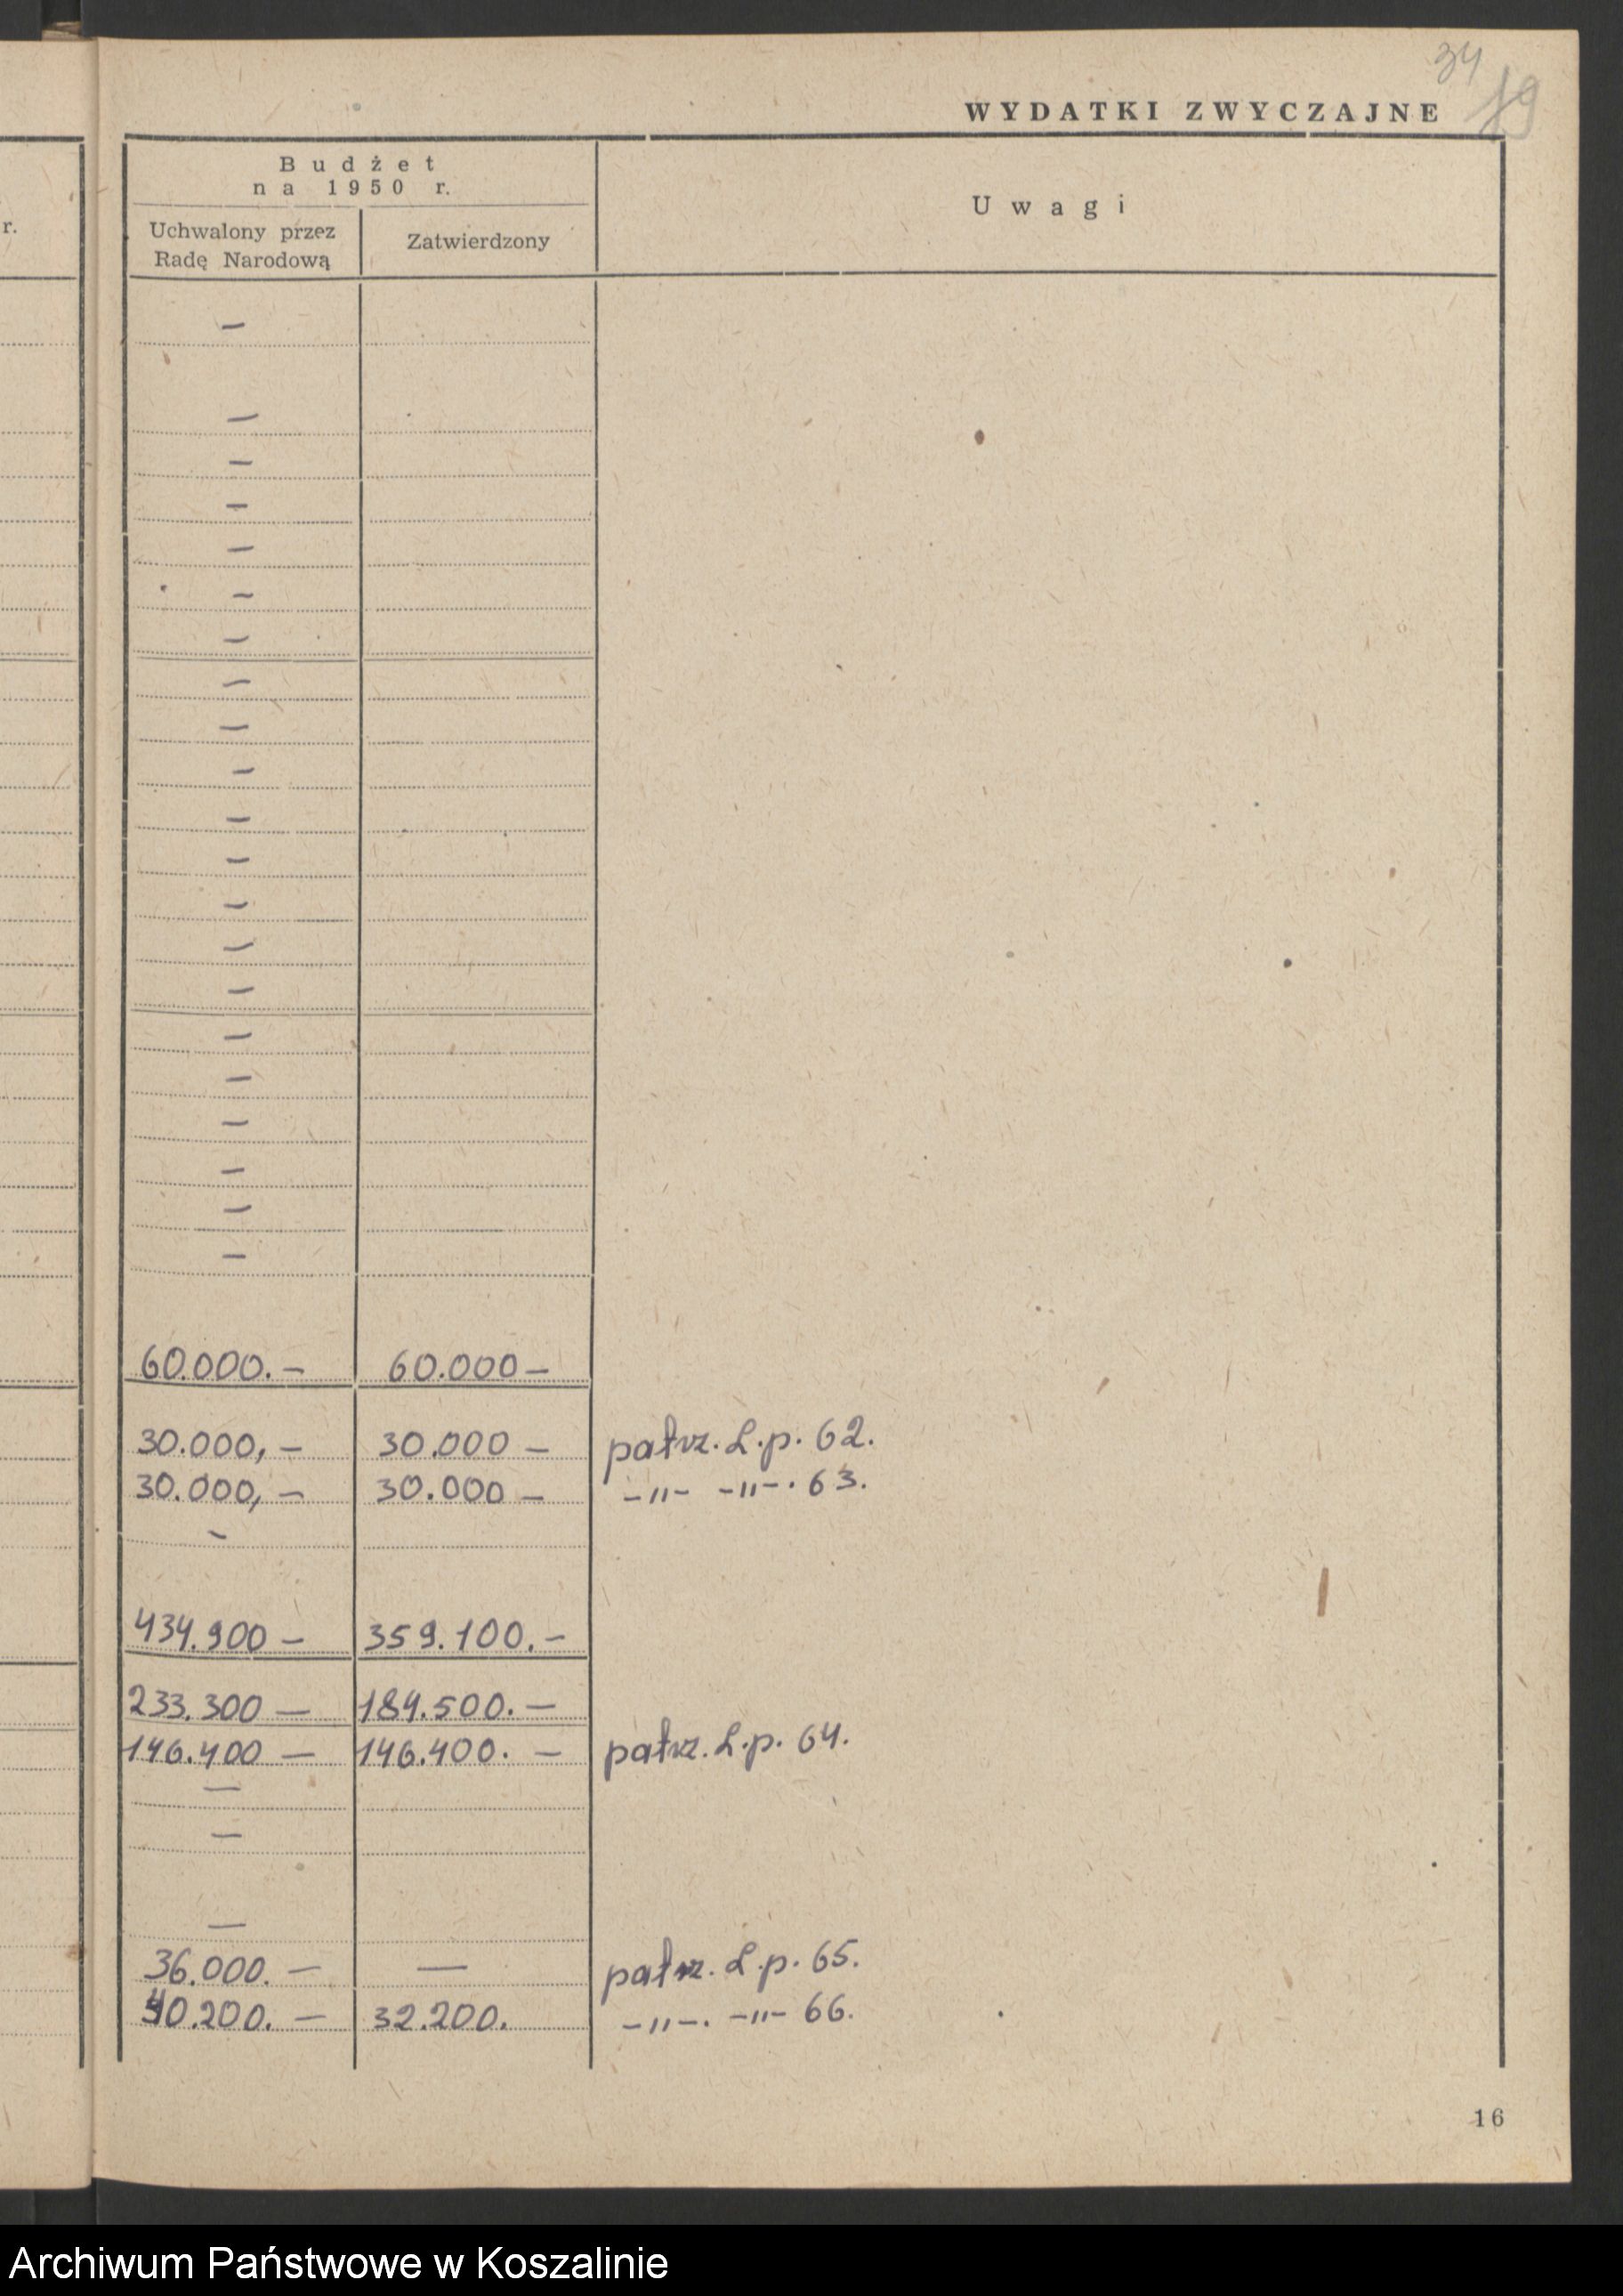 34
19
WYDATKI ZWYCZAJNE
Budżet
na 1950 r.
Uwagi
r.
Uchwalony przez
Radę Narodową
Zatwierdzony
—
—
—
—
—
—
—
—
—
—
—
—
—
—
—
—
—
—
—
—
—
60.000.— 60.000—
30.000,— 30.000— patrz. L.p. 62.
30.000,— 30.000— -"- -"-. 63.
—
434.900— 359.100.—
233.300— 184.500.—
146.400— 146.400.— patrz. L.p. 64.
—
—
—
36.000.— — patrz. L.p. 65.
40.200.— 32.200. -"-. -"- 66.
16
Archiwum Państwowe w Koszalinie